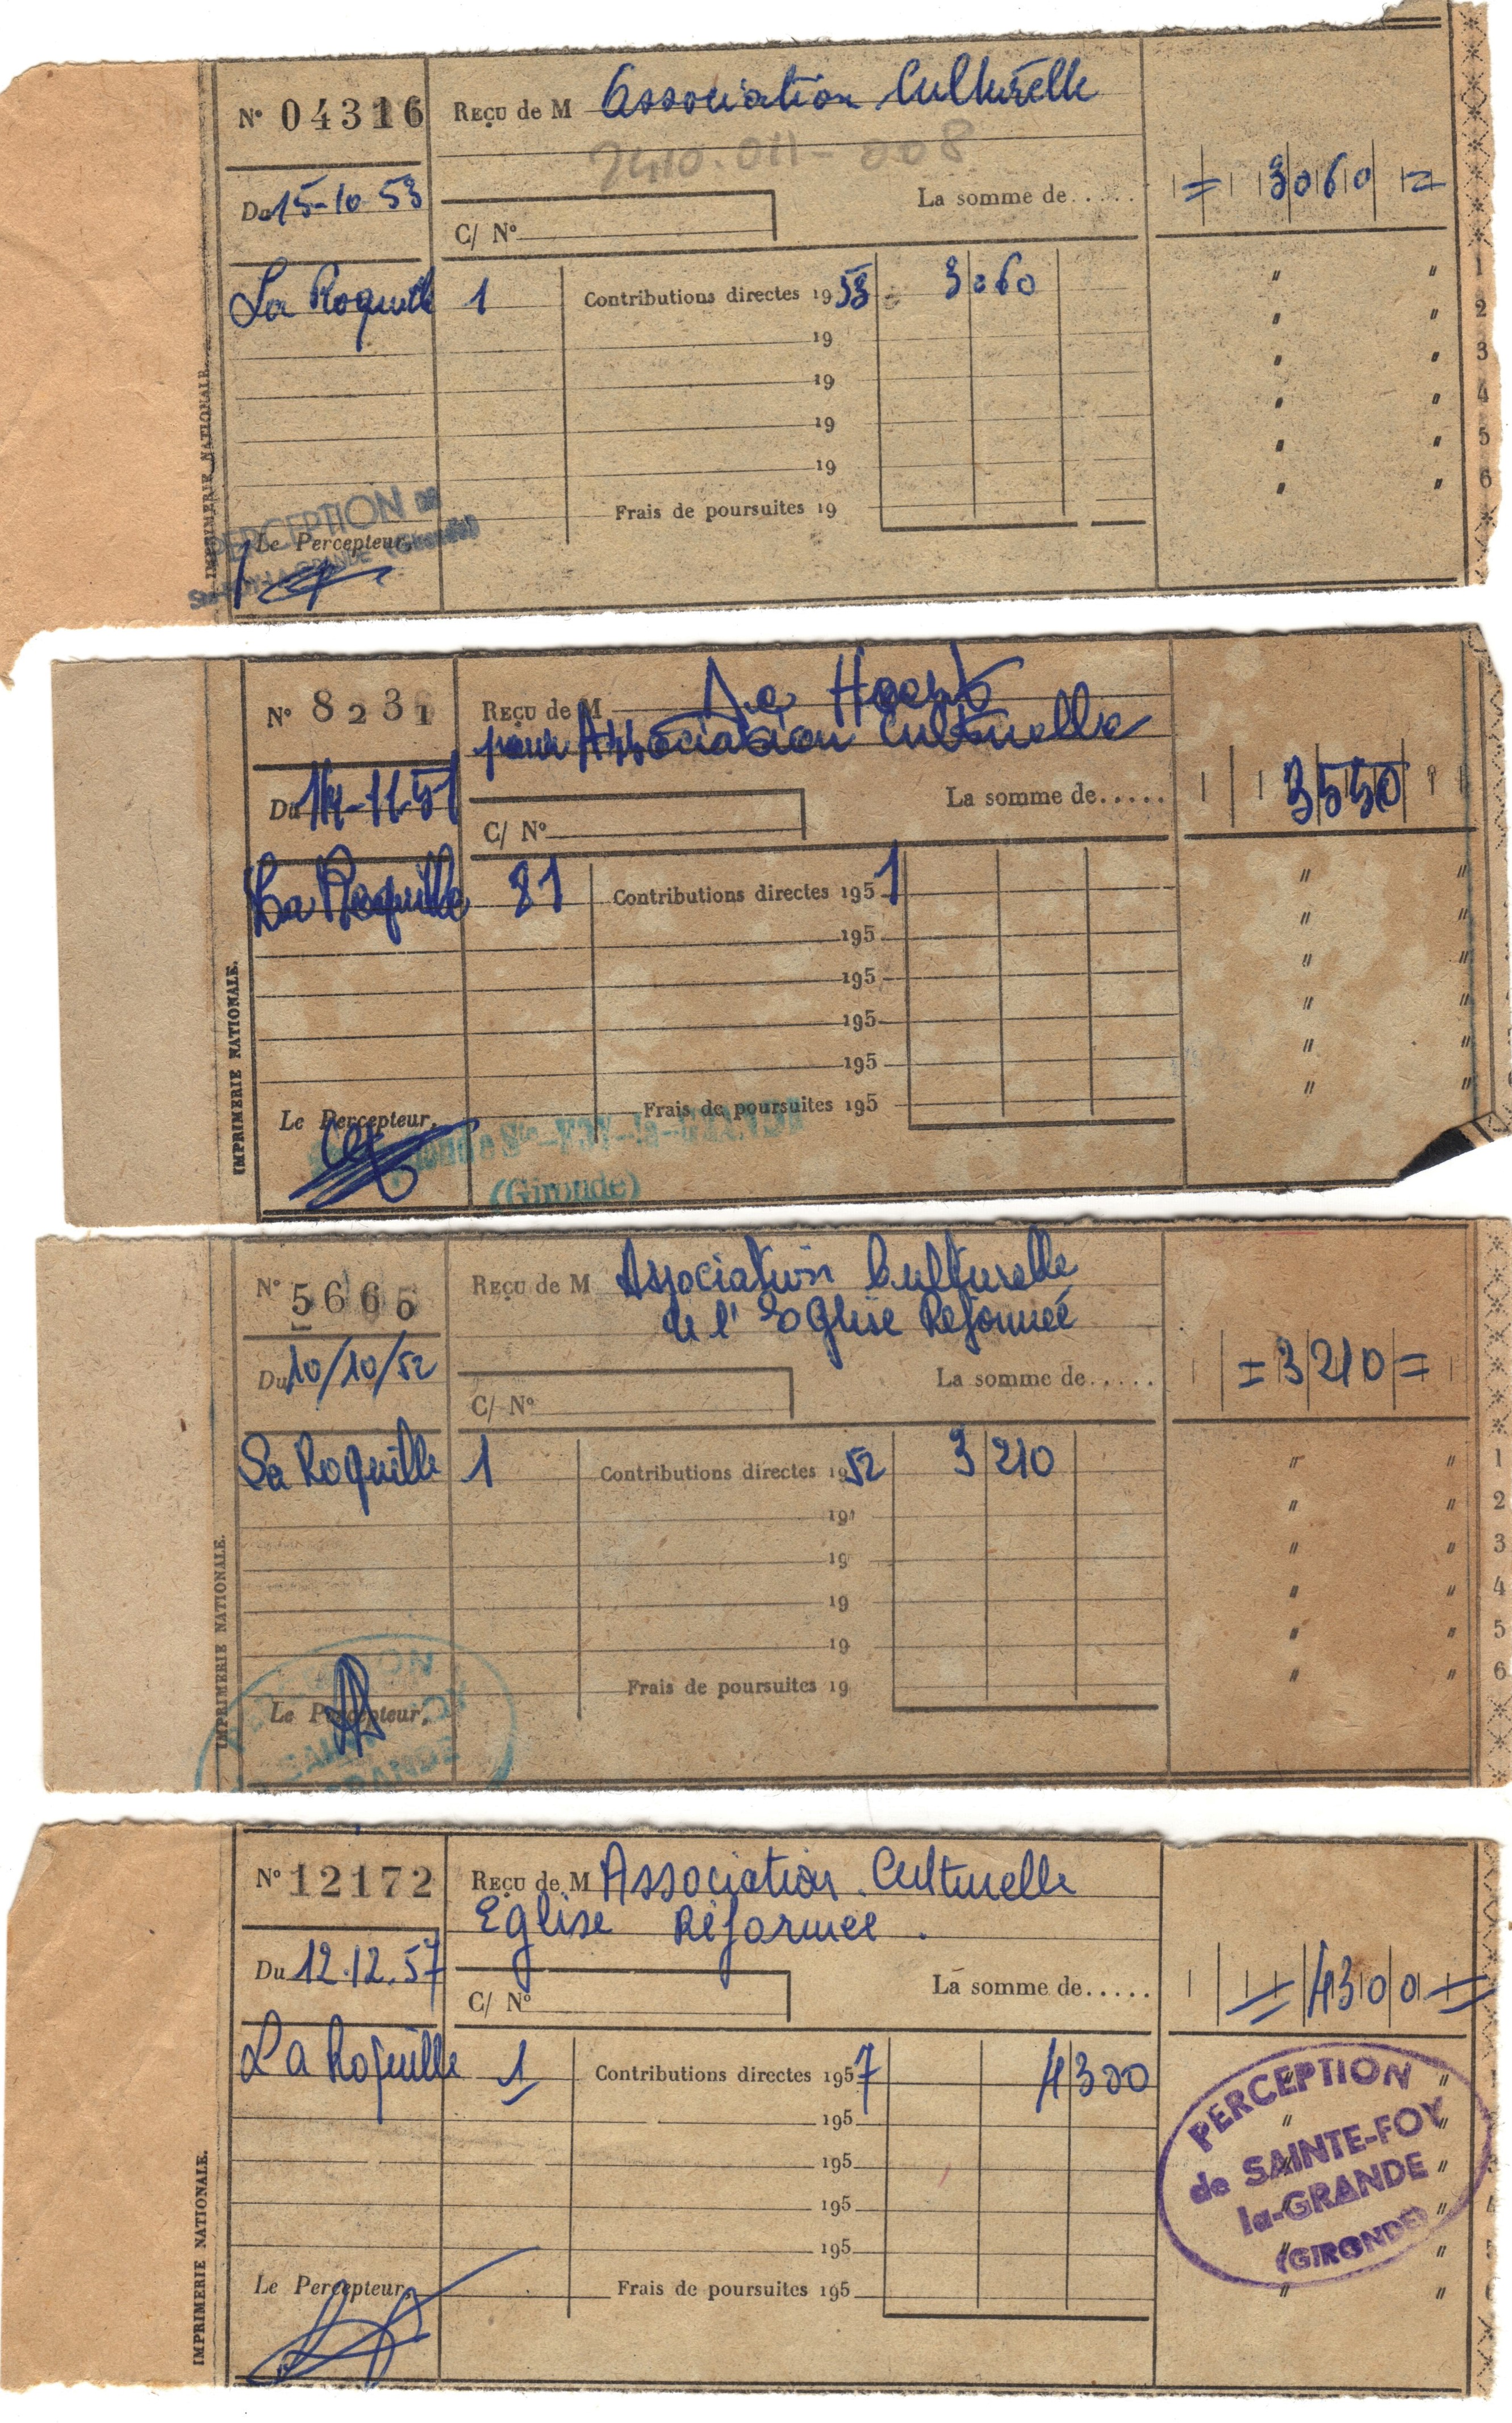 N° 04316
REÇU de M Association Culturelle
2410.011-008
Du 15-10 53
La somme de.....
= 3060 =
C/ N°
La Roquille 1 Contributions directes 1953 = 3060
19
19
19
19
Frais de poursuites 19
PERCEPTION DE
Le Percepteur,
Ste-FOY-LA-GRANDE (Gironde)
IMPRIMERIE NATIONALE.
1
2
3
4
5
6
N° 8231
REÇU de M
pour Association Culturelle
Du 14-11-51
La somme de.....
3550
C/ N°
La Roquille 81 Contributions directes 1951
195
195
195
195
Frais de poursuites 195
Le Percepteur,
Ste-FOY-la-GRANDE
(Gironde)
IMPRIMERIE NATIONALE.
N° 5665
REÇU de M Association Culturelle
de l'Eglise Reformée
Du 10/10/52
La somme de.....
= 3210 =
C/ N°
La Roquille 1 Contributions directes 1952 3210
19
19
19
19
Frais de poursuites 19
Le Percepteur,
IMPRIMERIE NATIONALE.
1
2
3
4
5
6
N° 12172
REÇU de M Association Culturelle
Eglise Réformée.
Du 12.12.57
La somme de.....
= 4300 =
C/ N°
La Roquille 1 Contributions directes 1957 4300
195
195
195
195
Frais de poursuites 195
Le Percepteur,
IMPRIMERIE NATIONALE.
PERCEPTION
de SAINTE-FOY
la-GRANDE
(GIRONDE)